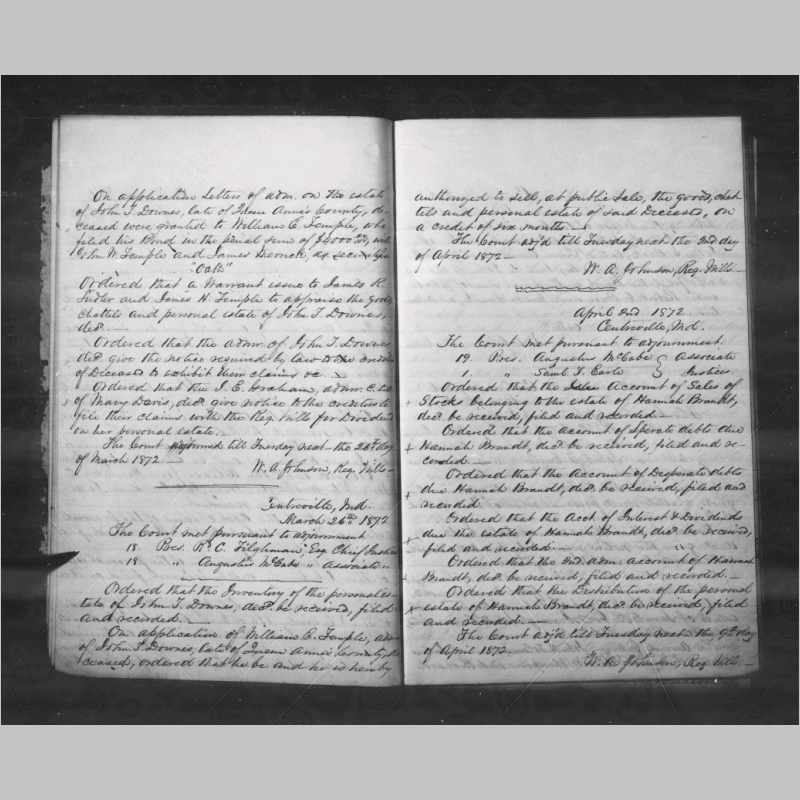 On application Letters of adm. on the estate
of John T. Downes, late of Queen Anna's County, de-
ceased were granted to William E. Temple, who
filed his Bond in the penal sum of with
John W. Temple and James as
"Calt"
Ordered that a Warrant issue to James R.
and James H. Temple to appraise the Goods,
chattels and personal estate of John T. Downes,
decd.
Ordered that the admr. of John T. Downes
decd give the notice required by law to the
of Deceased to exhibit their claims &c.
Ordered that the J. E. Graham, admr.
of Mary Davis, decd give notice to the creditors to
file their claims with the Reg. Wills for Dividend
on her personal estate.
The Court adjourned till Tuesday next the 26th day
of March 1872
W. A. Johnson, Reg. Wills
Centreville, Md.
March 26th 1872
The Court met pursuant to adjournment
18 Pres. R. C. Tilghman, Esq Chief Justice
18 " Augustus McCabe " Associate
Ordered that the Inventory of the personal es-
tate of John T. Downes, decd be received, filed
and recorded.
On application of William E. Temple, adm
of John T. Downes, late of Queen Anna's County, de-
ceased, ordered that he be and he is hereby
authorized to sell, at public sale, the goods, chat
tels and personal estate of said Deceased, on
a credit of six months
The Court adj'd till Tuesday next the 2nd day
of April 1872
W. A. Johnson, Reg. Wills
April 2nd 1872.
Centreville, Md.
The Court met pursuant to adjournment.
19. Pres. Augustus McCabe } Associate
1. " Saml T. Earle } Justices
Ordered that the Account of Sales of
Stocks belonging to the estate of Hannah Brandt,
decd be received, filed and recorded
Ordered that the account of Sperate debts due
Hannah Brandt, decd be received, filed and re-
corded.
Ordered that the Account of Desperate debts
due Hannah Brandt, decd be received, filed and
recorded
Ordered that the Acct. of Interest & Dividends
due the estate of Hannah Brandt, decd be received,
filed and recorded.
Ordered that the 2nd adm. account of Hannah
Brandt, decd be received, filed and recorded.
Ordered that the Distribution of the personal
estate of Hannah Brandt, decd be received, filed
and recorded.
The Court adj'd till Tuesday next the 9th day
of April 1872.
W. A. Johnson, Reg. Wills